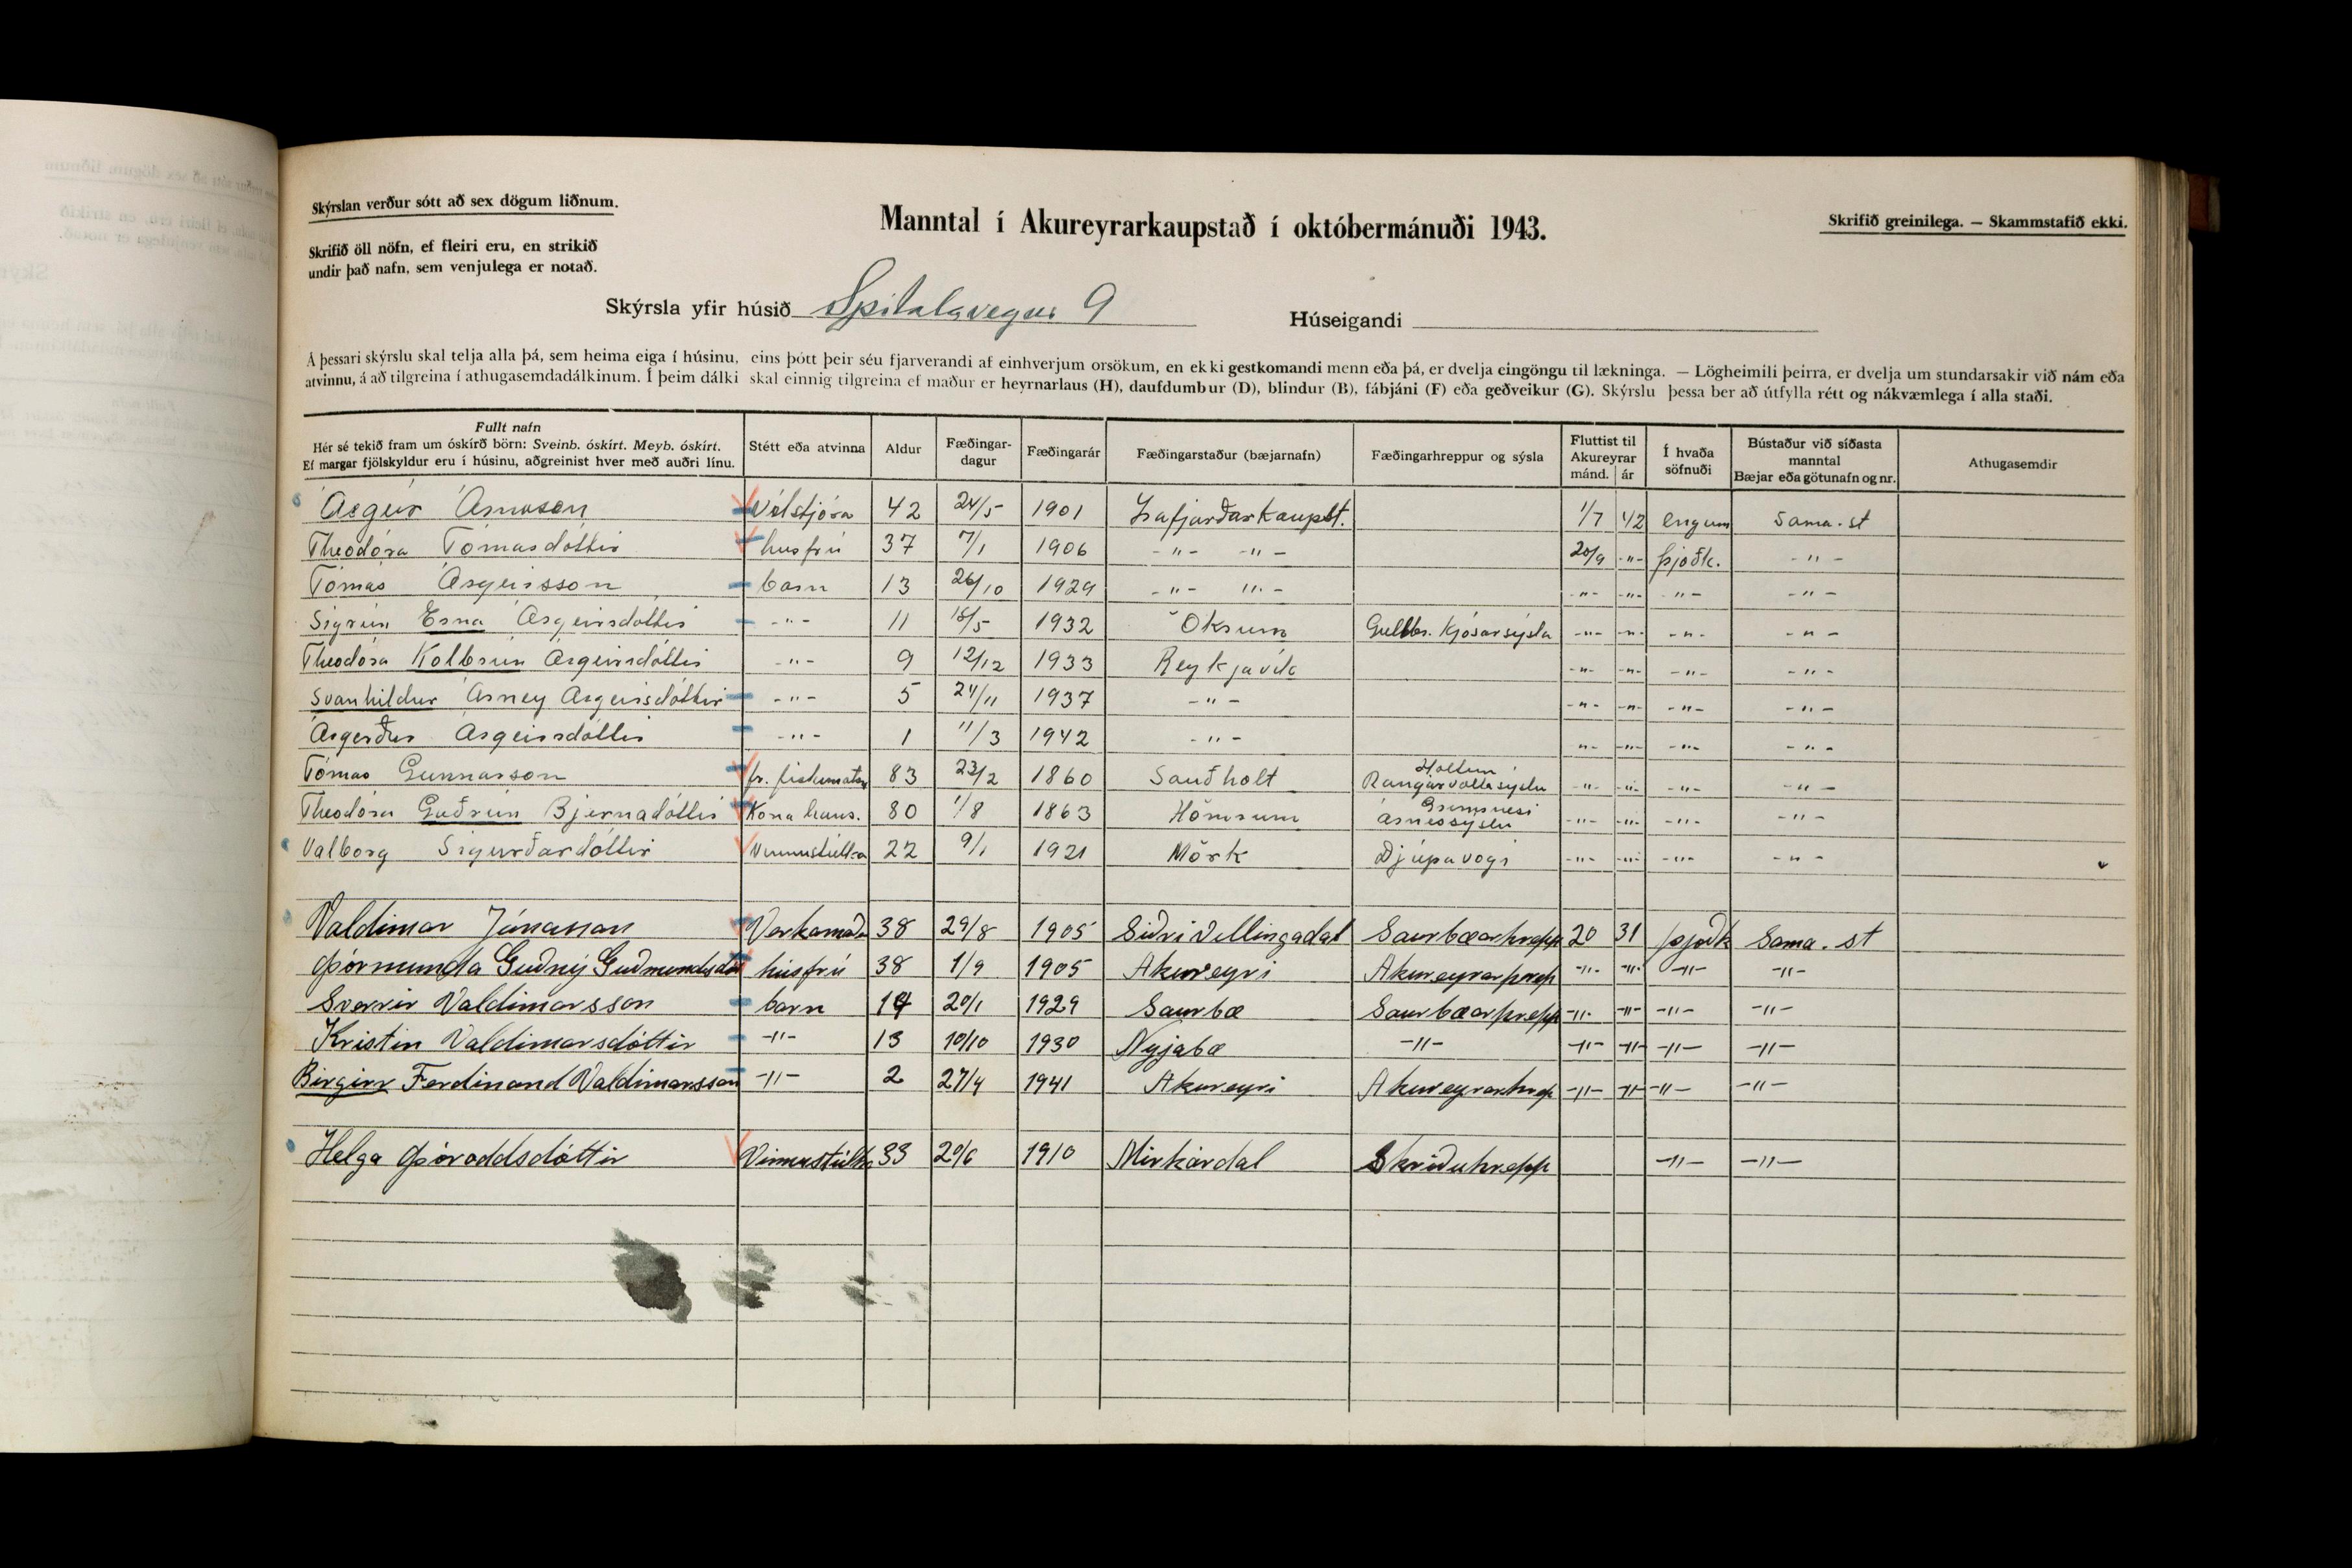 Skýrslan verður sótt að sex dögum liðnum.
Skrifið öll nöfn, ef fleiri eru, en strikið
undir það nafn, sem venjulega er notað.
Manntal í Akureyrarkaupstað í októbermánuði 1943.
Skrifið greinilega. — Skammstafið ekki.
Skýrsla yfir húsið Spítalavegur 9 Húseigandi
Á þessari skýrslu skal telja alla þá, sem heima eiga í húsinu, eins þótt þeir séu fjarverandi af einhverjum orsökum, en ekki gestkomandi menn eða þá, er dvelja eingöngu til lækninga. — Lögheimili þeirra, er dvelja um stundarsakir við nám eða
atvinnu, á að tilgreina í athugasemdadálkinum. Í þeim dálki skal einnig tilgreina ef maður er heyrnarlaus (H), daufdumbur (D), blindur (B), fábjáni (F) eða geðveikur (G). Skýrslu þessa ber að útfylla rétt og nákvæmlega í alla staði.
Fullt nafn
Hér sé tekið fram um óskírð börn: Sveinb. óskírt. Meyb. óskírt.
Ef margar fjölskyldur eru í húsinu, aðgreinist hver með auðri línu.
Stétt eða atvinna
Aldur
Fæðingar-
dagur
Fæðingarár
Fæðingarstaður (bæjarnafn)
Fæðingarhreppur og sýsla
Fluttist til
Akureyrar
mánd. ár
Í hvaða
söfnuði
Bústaður við síðasta
manntal
Bæjar eða götunafn og nr.
Athugasemdir
Ásgeir Árnason Vélstjóra 42 24/5 1901 Ísafjarðarkaupst. 1/7 42 engum Sama. st
Theodóra Tómasdóttir húsfrú 37 7/1 1906 -"- -"- 20/9 -"- þjóðk. -"-
Tómas Ásgeirsson barn 13 26/10 1929 -"- -"- -"- -"- -"- -"-
Sigrún Erna Ásgeirsdóttir -"- 11 15/5 1932 Ökrum Gullbr. Kjósarsýsla -"- -"- -"- -"-
Theodóra Kolbrún Ásgeirsdóttir -"- 9 12/12 1933 Reykjavík -"- -"- -"- -"-
Svanhildur Árney Ásgeirsdóttir -"- 5 24/11 1937 -"- -"- -"- -"- -"-
Ásgerður Ásgeirsdóttir -"- 1 11/3 1942 -"- -"- -"- -"- -"-
Tómas Gunnarsson fr. fiskimatsm 83 23/2 1860 Sauðholt Holtum Rangárvallasýslu -"- -"- -"- -"-
Theodóra Guðrún Bjarnadóttir Kona hans. 80 1/8 1863 Hömrum Grímsnesi Árnessýslu -"- -"- -"- -"-
Valborg Sigurðardóttir Vinnustúlka 22 9/1 1921 Mörk Djúpavogi -"- -"- -"- -"-
Valdimar Jónasson Verkamað 38 29/8 1905 Siðri Villingadal Saurbæarhrepp 20 31 þjóðk Sama. st
Þórmunda Guðný Guðmundsdótt húsfrú 38 1/9 1905 Akureyri Akureyrarhrep -"- -"- -"- -"-
Sverrir Valdimarsson barn 14 20/1 1929 Saurbæ Saurbæarhrepp -"- -"- -"- -"-
Kristin Valdimarsdóttir -"- 13 10/10 1930 Nyjabæ -"- -"- -"- -"- -"-
Birgirr Ferdinand Valdimarsson -"- 2 27/4 1941 Akureyri Akureyrarhrep -"- -"- -"- -"-
Helga Þóroddsdóttir Vinnustúlka 33 20/6 1910 Mirkárdal Skriðuhrepp -"- -"-